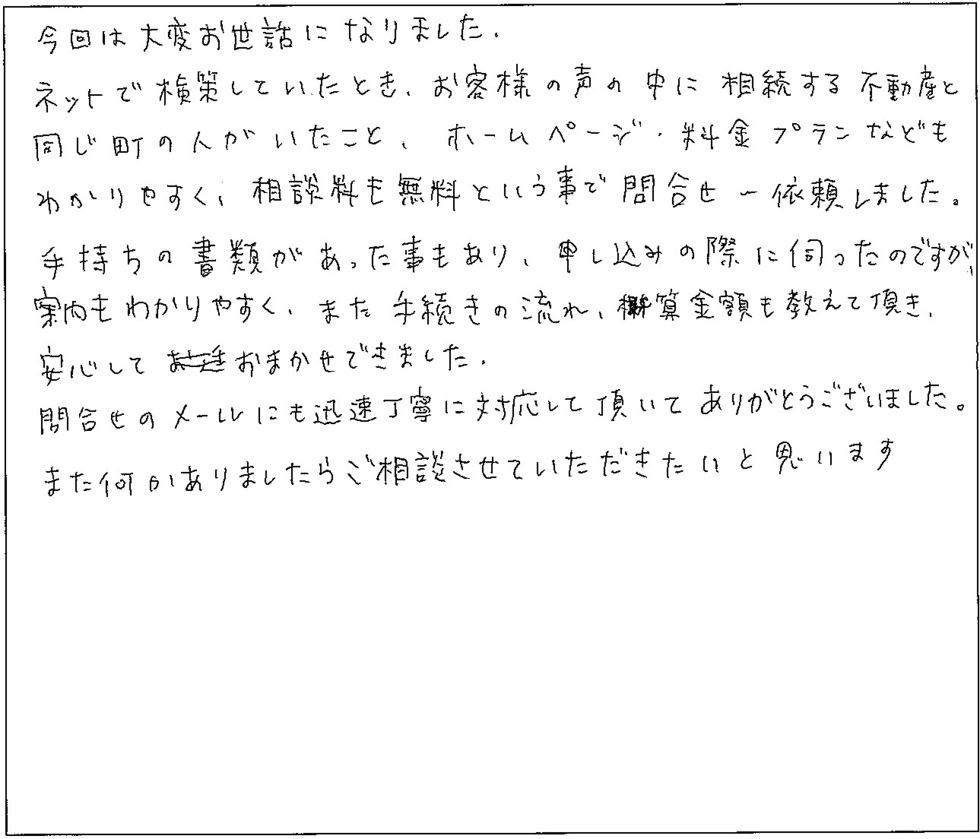 今回は大変お世話になりました.
ネットで検策していたとき、お客様の声の中に相続する不動産と
同じ町の人がいたこと、ホームページ・料金プランなども
わかりやすく、相談料も無料という事で問合せ〜依頼しました。
手持ちの書類があった事もあり、申し込みの際に伺ったのですが、
案内もわかりやすく、また手続きの流れ、概算金額も教えて頂き、
安心しておまかせできました.
問合せのメールにも迅速丁寧に対応して頂いてありがとうございました。
また何かありましたらご相談させていただきたいと思います